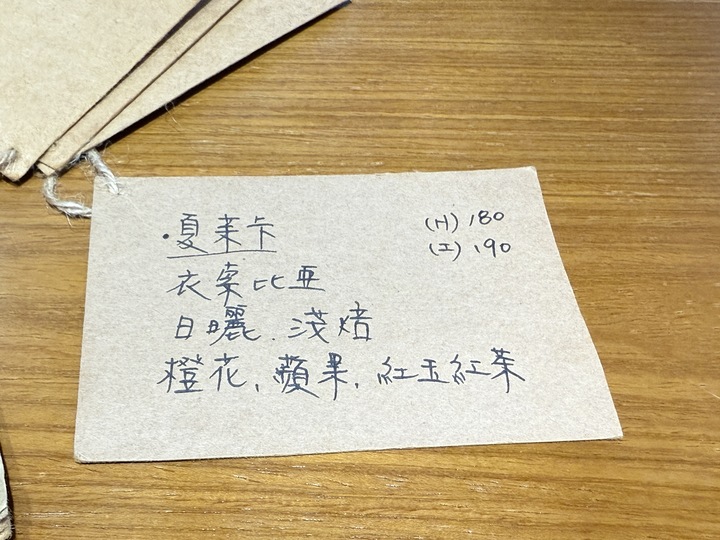 ·夏茉卡
(H) 180
(I) 190
衣索比亞
日曬.淺焙
橙花,蘋果,紅玉紅茶